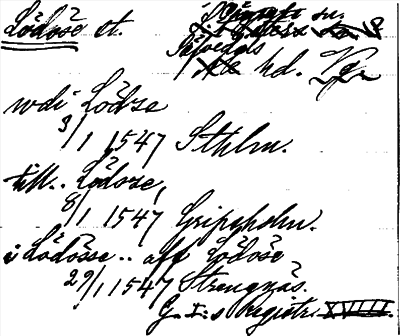 Lödöse st.
Ale hd. Vg.
wdi Lödze
3/1 1547 Sthlm.
till.. Lödoze,
8/1 1547 Gripsholm.
i Lödösse.. aff Lödöse
29/1 1547 Strengnäs.
G. I:s Registr. XVIII.